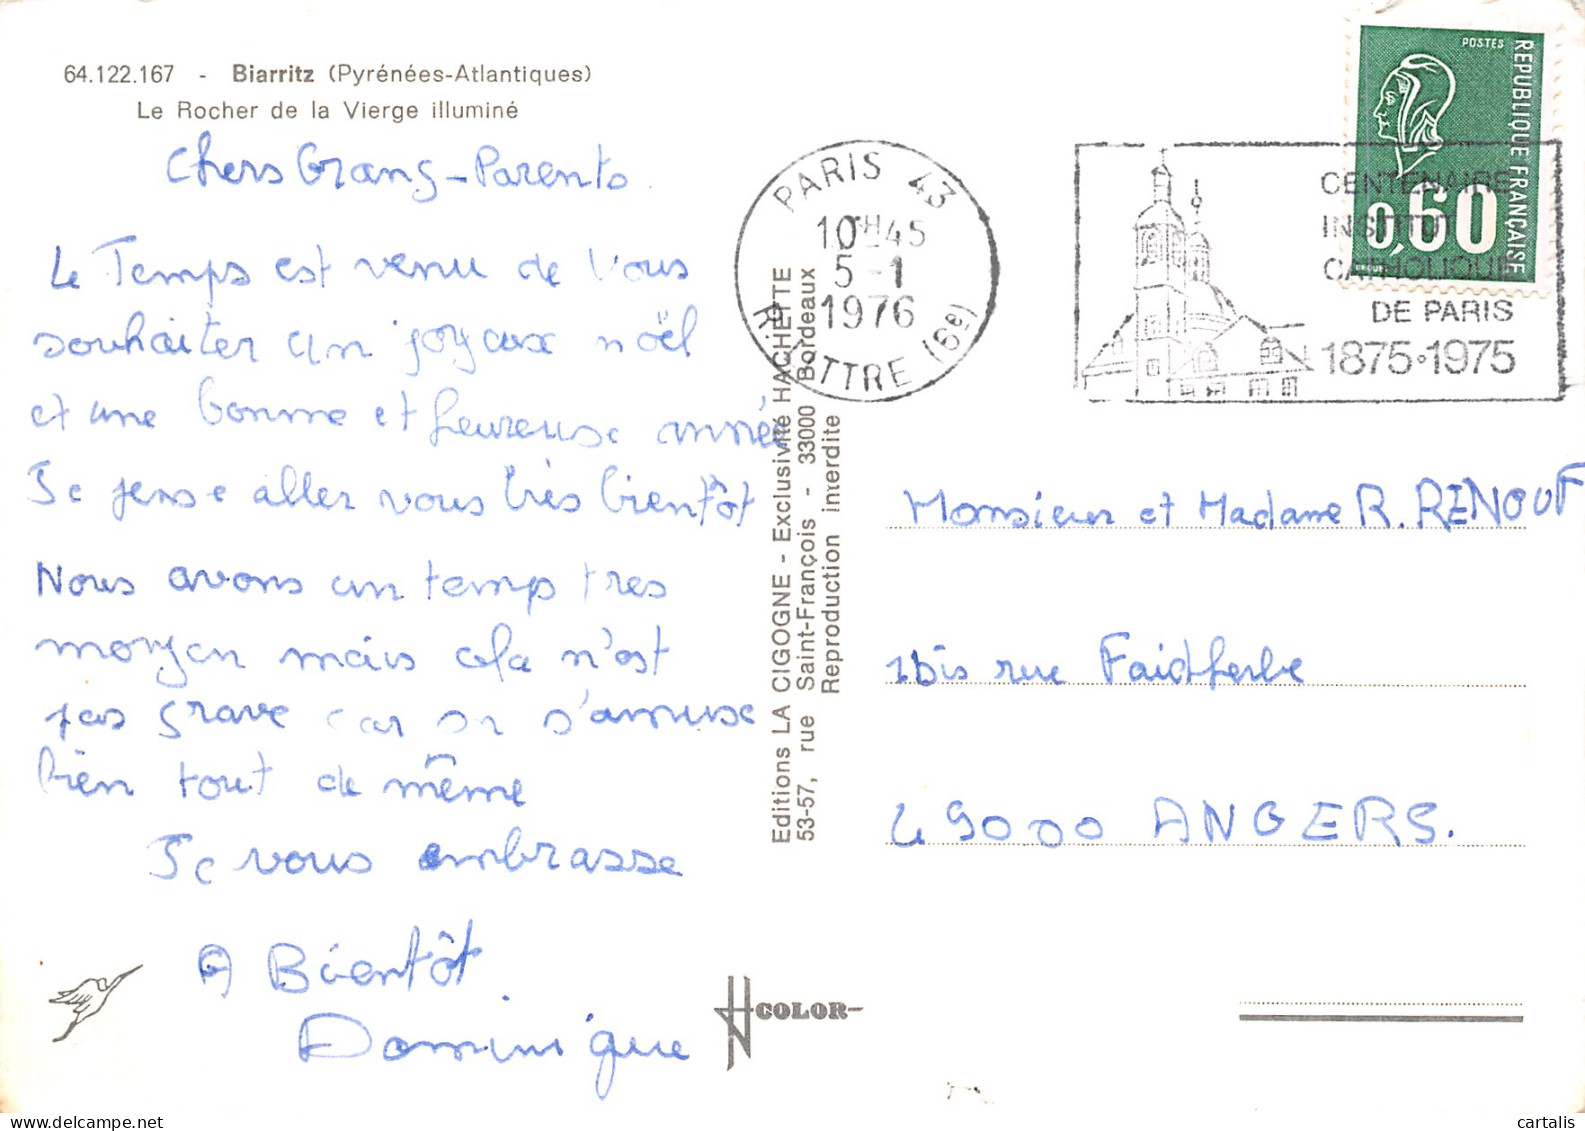 64.122.167 - Biarritz (Pyrénées-Atlantiques)
Le Rocher de la Vierge illuminé
Chers Grang-Parents
Le Temps est venu de Vous
souhaiter un joyaux noël
et une bonne et heureuse année
Je pense aller vous très bientôt
Nous avons un temps tres
moryen mais cela n'est
pas grave car on s'amuse
bien tout de même
Je vous embrasse
A Bientôt
Dominique
Editions LA CIGOGNE - Exclusivité HACHETTE
53-57, rue Saint-François - 33000 Bordeaux
Reproduction interdite
COLOR
PARIS 43
10H45
5-1
1976
R. LITTRE (6e)
CENTENAIRE
INSTITUT
CATHOLIQUE
DE PARIS
1875·1975
POSTES
REPUBLIQUE FRANÇAISE
0,60
Monsieur et Madame R. RENOUF
1bis rue Faidherbe
49000 ANGERS.
delcampe.net
cartalis